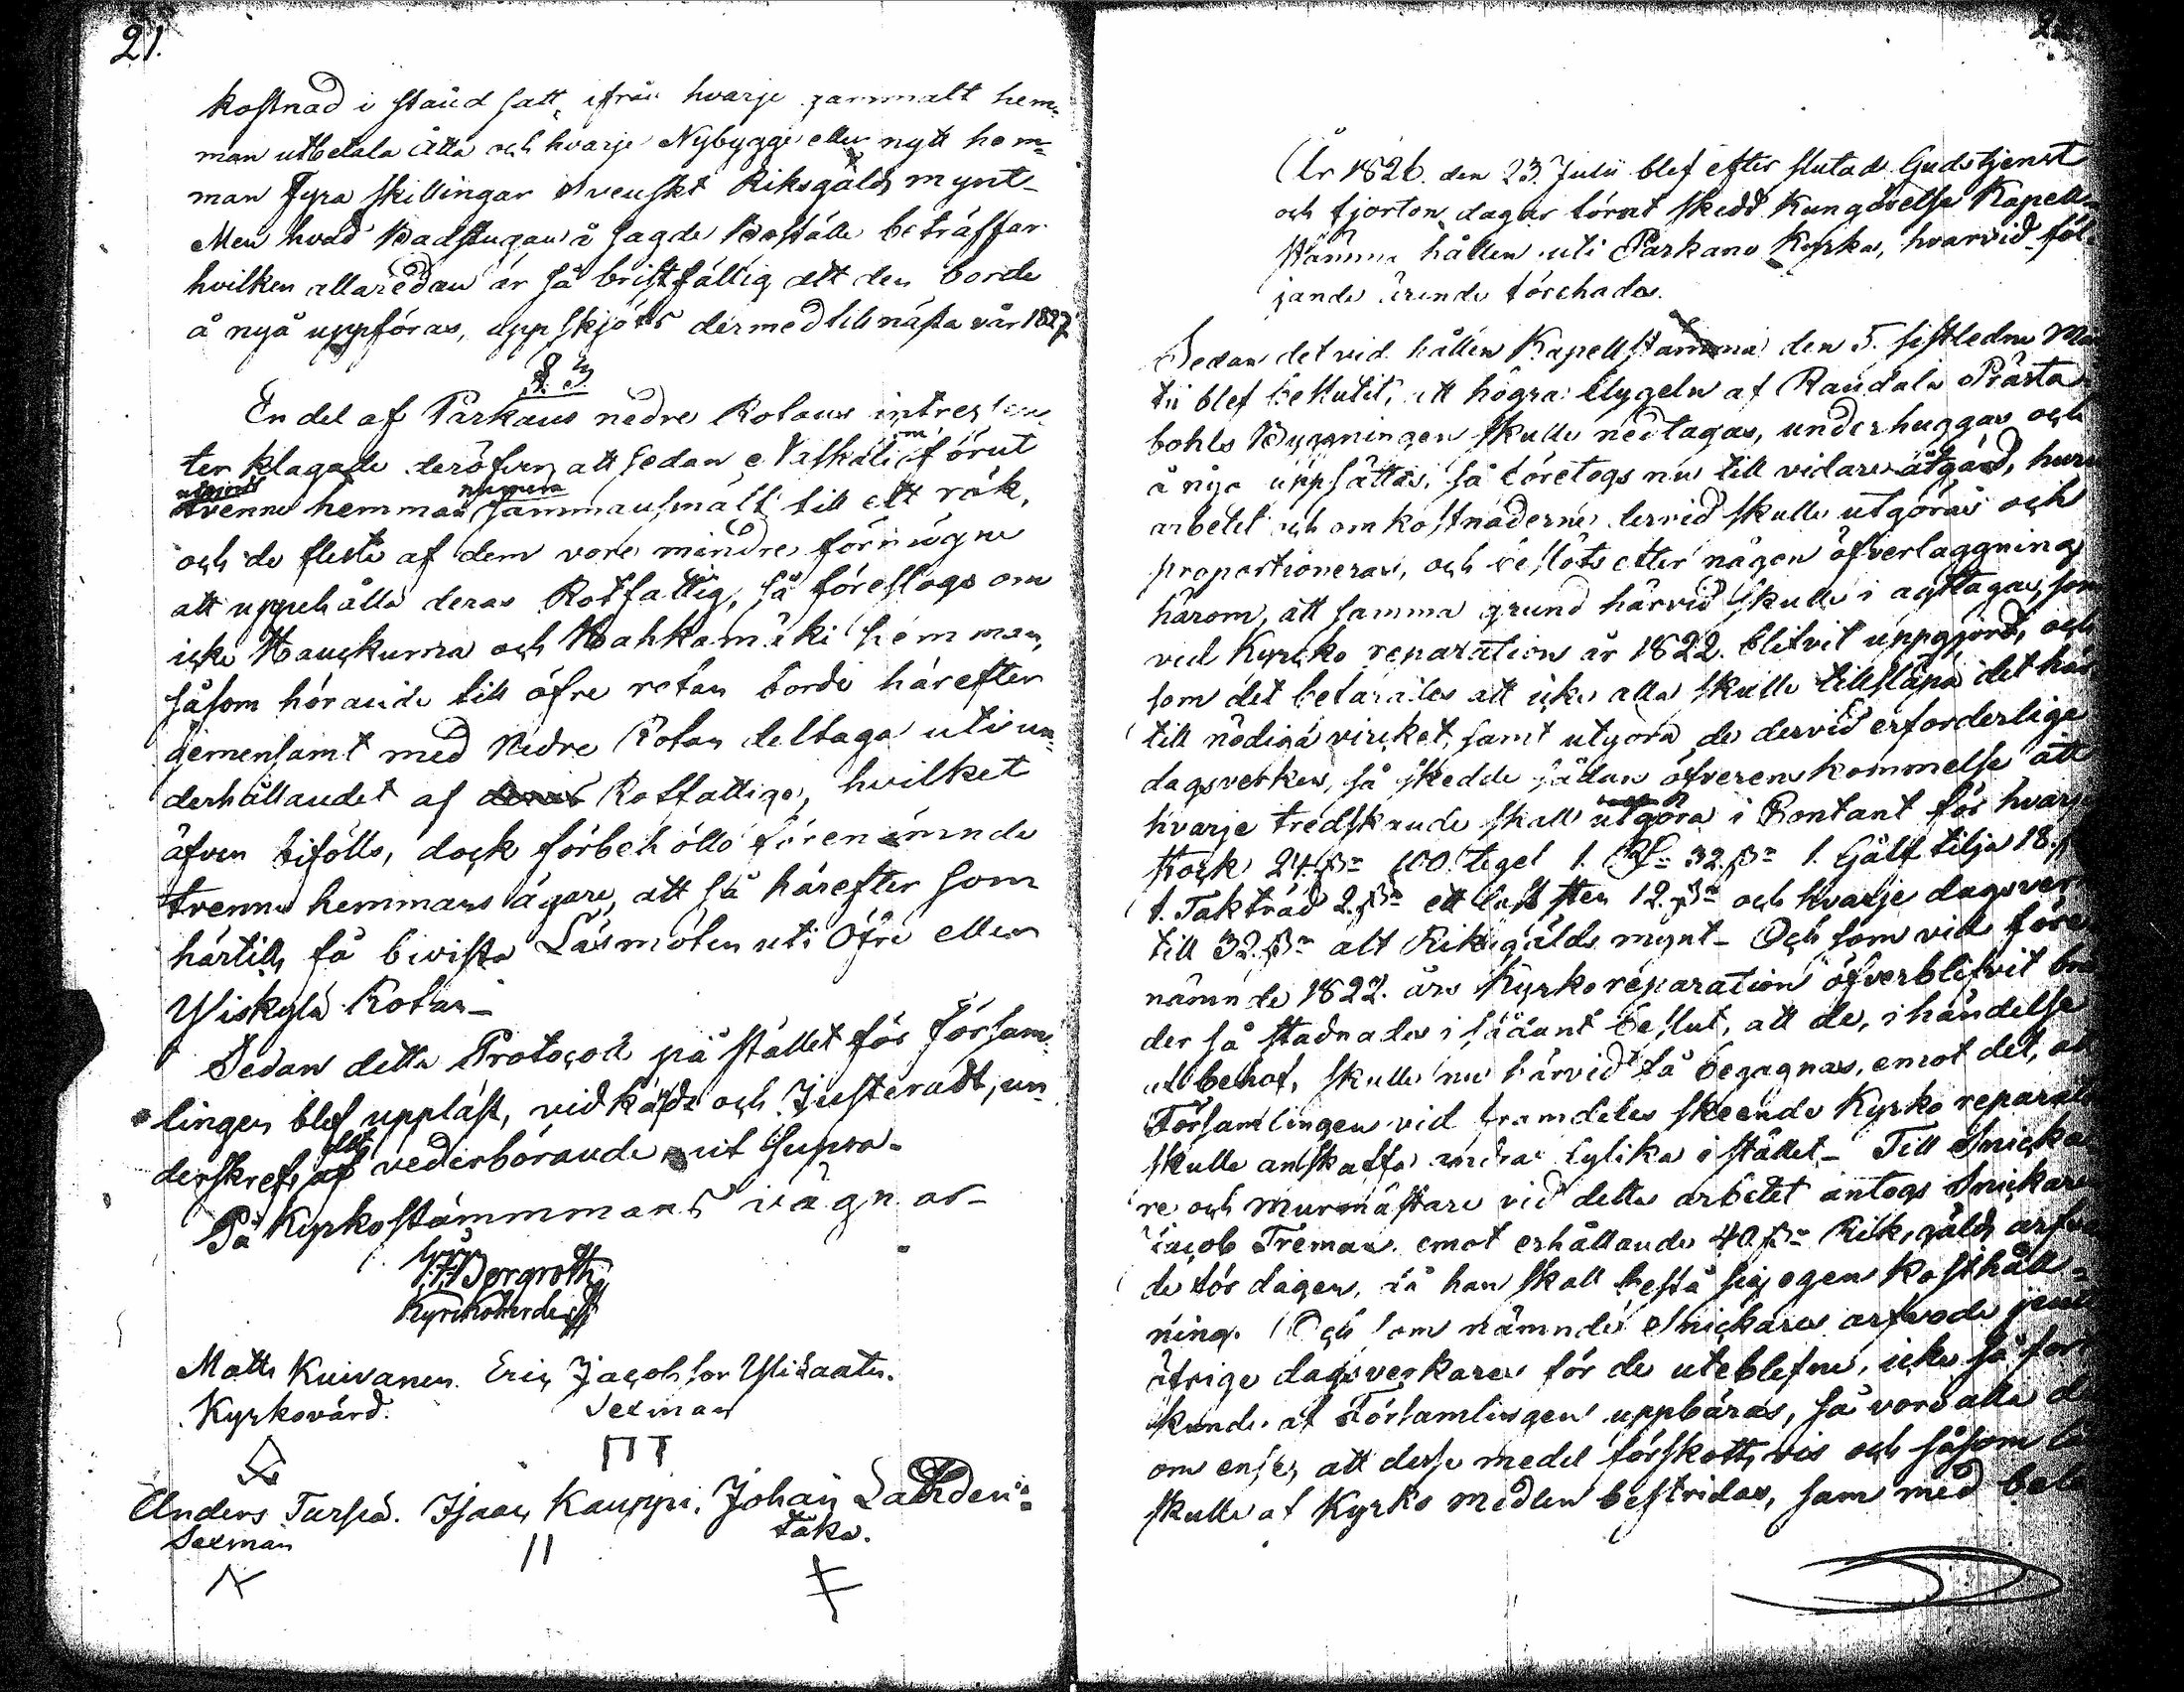 21.
kostnad i stånd satt, ifrån hvarje gammalt hem=
man utbetala Åtta och hvarje Nybygge eller nytt hem=
man Fyra skillingar Svenskt Riksgälds mynt_
Men hvad Badstugan å sagde Boställe beträffar
hvilken allaredan är så bristfällig att den borde
å nyo uppföras, uppskjöts dermed till nästa vår 1827
§. 3
En del af Parkans nedre Rotans intressen
ter klagade deröfver, att sedan Vaskäli, som förut
utgjort
trenne hemman numera sammansmält till ett rök,
och de fleste af dem vore mindre förmögne
att uppehålla deras Rotfattig, så föreslogs om
icke Hauckurra och Kahkamäki hemman,
såsom hörande till öfre rotan borde härefter
gemensamt med Nedre Rotan deltaga uti un=
derhållandet af deras Rotfattige, hvilket
äfven biföllo, dock förbehöllo förenämnde
trenne hemmans ägare, att få härefter som
härtills få bivista Läsmöten uti Öfre eller
Wiskylä Rotan_
Sedan detta Protocoll på stället för försam=
lingen blef uppläst, vidkänd och Justeradt, un
derskrefs det af vederbörande ut supra.
På Kyrkostämmans vägnar_
Bergroth
Kyrckoherde
Matts Kuivanen. Eric Jacobsson Ylisaato.
Kyrkovärd. Sexman
Anders Turpa. Isaac Kauppi, Johan Lahden=
Sexman tako.
22.
År 1826. den 23. Julii blef efter slutad Gudstjenst
och fjorton dagar förut skedd Kungörelse Kapell
stämma hållen uti Parkano Kyrka, hvarvid föl
jande ärende förehades.
Sedan det vid hållen Kapellstämma den 5. sistledne Mar
tii blef beslutit, att högra flygeln af Raudala Prästa
bohls Byggningen skulle nedtagas, underhuggas och
å nyo uppsättas, så företogs nu till vidare åtgärd, huru
arbetet och omkostnaderne dervid skulle utgöras och
proportioneras, och beslöts efter någon öfverläggning
härom, att samma grund härvid skulle i agttagas, som
vid Kyrcko reparation år 1822. blifvit uppgjord, och
som det befarades att icke alla skulle tillsläpa det här
till nödiga vircket, samt utgöra de dervid erforderlige
dagsverken, så skedde sådan öfverenskommelse att
hvarje tredskande skall utgöra i Contant för hvarje
stock 24. ß= 100. tegel 1. Rd= 32. ß= 1. Gålf tilja 18. ß
1. Taktråd 2. ß= ett lass sten 12. ß= och hvarje dagsver
till 32. ß= alt Riksgälds mynt_ Och som vid före
nämnde 1822. års Kyrko reparation öfverblifvit brä
der så stadnades i sådant beslut, att de, i händelse
utbehof, skulle nu härvid få begagnas, emot det, at
Församlingen vid framdeles skeende Kyrko reparatio
skulle anskaffa andra dylika i stället_ Till Snicka
re och murmästare vid dette arbetet antogs Snickare
Jacob Freman. emot erhållande 40. ß= Riksgälds arfvo
de för dagen, då han skall bestå sig egen kosthåll=
ning. Och som nämnde Snickares arfvode jemte
öfrige dagsverkares för de uteblefne, icke så fort
kunde af Församlingen uppbäras, så voro alla de
om ense, att desse medel förskottsvis och såsom lån
skulle af Kyrko medlen bestridas, som med beta